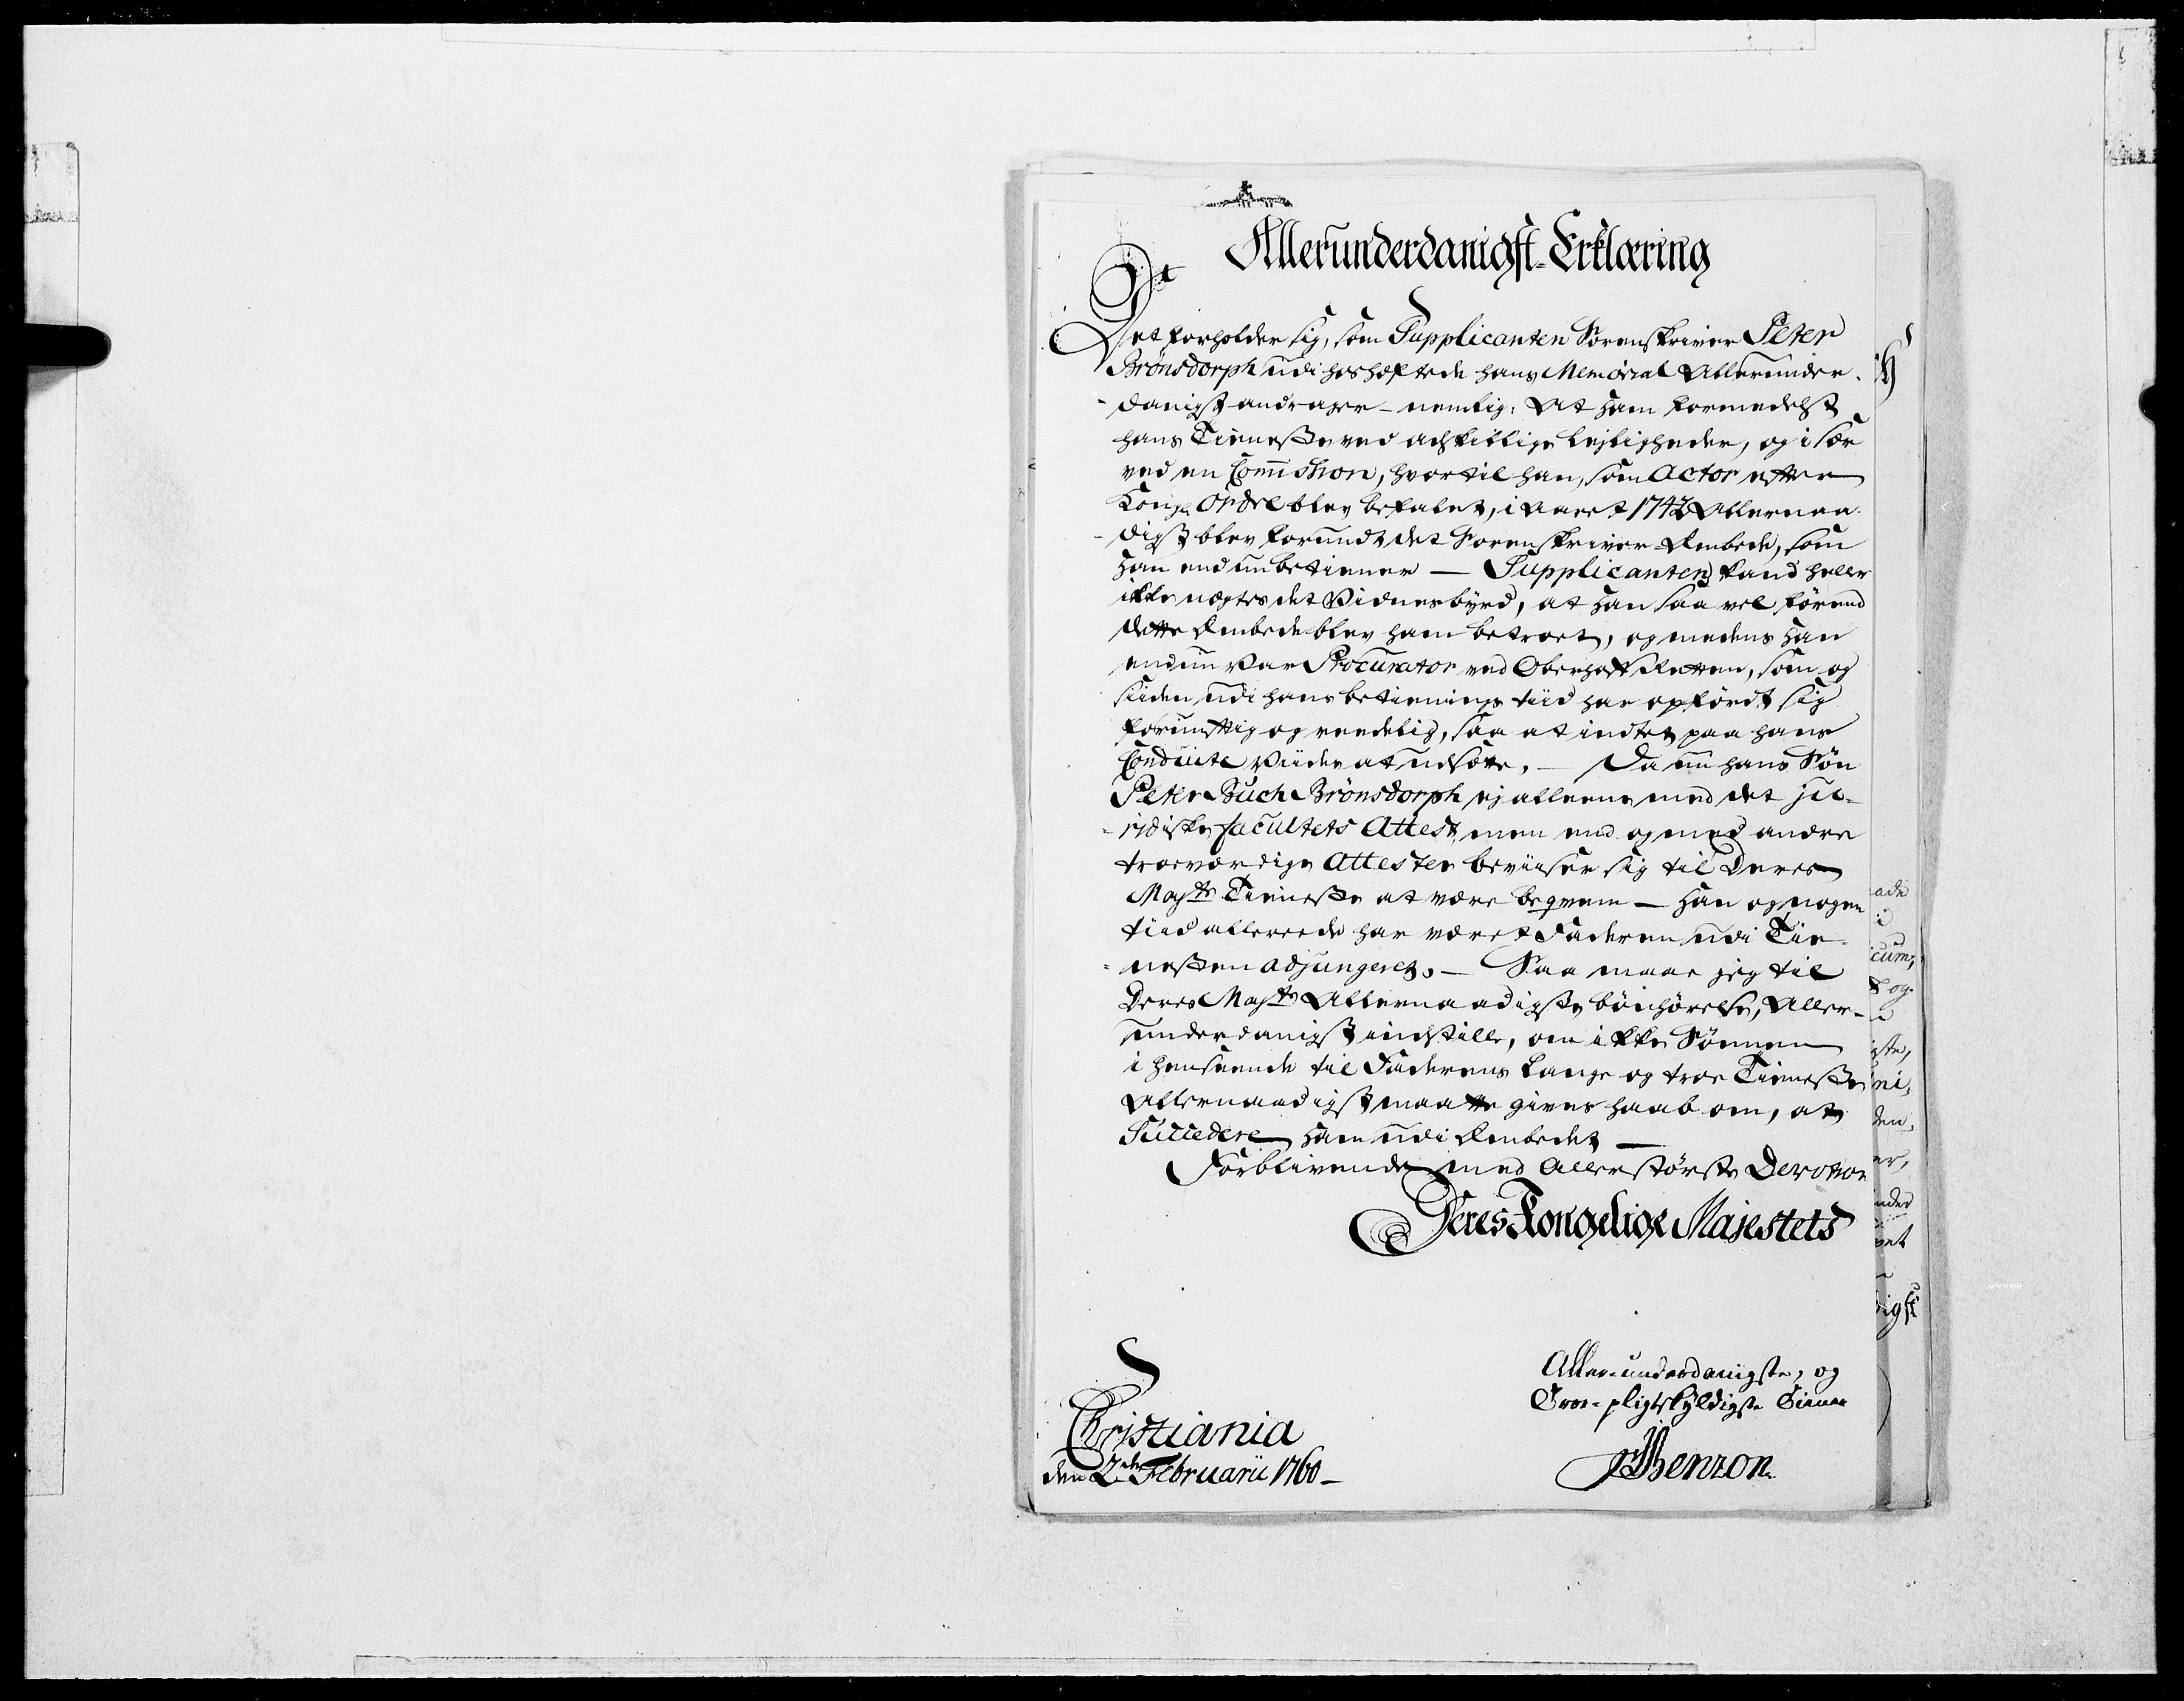 Allerunderdanigst-Erklæring
Det forholder sig, som Supplicanten Sorenskriver Peter
Brönsdorph udi hoshæftede hans Memorial Allerunder-
danigst andrager - nemlig: At ham formedelst
hans Tieneste ved adskillige lejligheder, og i sær
ved en Commission, hvortil han, som Actor efter
Kongl. Ordre blev befalet, i Aaret 1742 Allernaa-
digst blev forundt det Sorenskriver-Embede, som
han end nu betiener — Supplicanten kand heller
ikke nægtes det Vidnesbyrd, at han saa vel förend
dette Embede blev ham betroet, og medens han
endnu var Procurator ved Oberhoff Retten, som og
siiden udi hans betienings tiid har opfördt sig
fornuftig og reedelig, saa at indtet paa hans
Conduite viides at udsætte. — Da nu hans Sön
Peter Buch Brönsdorph ej alleene med det ju-
ridiske facultets Attest, men end og med andre
troeværdige Attester beviiser sig til Deres
Mayts Tieneste at være beqvem — han og nogen
tiid allereede har været Faderen udi Tie-
nesten adjungeret. — Saa maae jeg til
Deres Mayts Allernaadigste bönhörelse, Aller-
underdanigst indstille, om ikke Sönnen
i henseende til Faderens lange og troe Tieneste
Allernaadigst maatte gives haab om, at
Succedere ham udi Embedet —
Forblivende med Allerstörste Devotion
Deres Kongelige Majestets
Aller-underdanigste, og
Troe-pligtskyldigste Tiener
Christiania
den 2den Februarii 1760 —
JBenzon